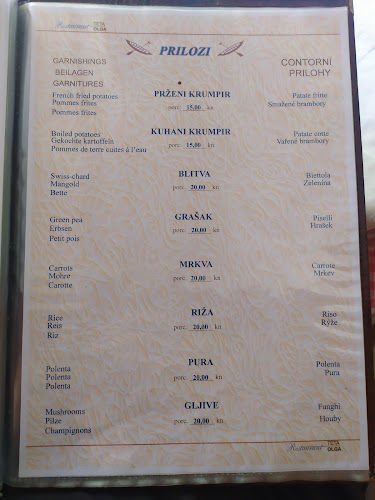 Restaurant TETA OLGA
PRILOZI
GARNISHINGS
BEILAGEN
GARNITURES
CONTORNI
PRILOHY
French fried potatoes
Pommes frites
Pommes frites
PRŽENI KRUMPIR
porc. 15,00 kn
Patate fritte
Smažené brambory
Boiled potatoes
Gekochte kartoffeln
Pommes de terre cuites à l'eau
KUHANI KRUMPIR
porc. 15,00 kn
Patate cotte
Vařené brambory
Swiss-chard
Mangold
Bette
BLITVA
porc. 20,00 kn
Biettola
Zelenina
Green pea
Erbsen
Petit pois
GRAŠAK
porc. 20,00 kn
Piselli
Hrašek
Carrots
Mohre
Carotte
MRKVA
porc. 20,00 kn
Carrote
Mrkev
Rice
Reis
Riz
RIŽA
porc. 20,00 kn
Riso
Rýže
Polenta
Polenta
Polenta
PURA
porc. 20,00 kn
Polenta
Pura
Mushrooms
Pilze
Champignons
GLJIVE
porc. 20,00 kn
Funghi
Houby
Restaurant TETA OLGA